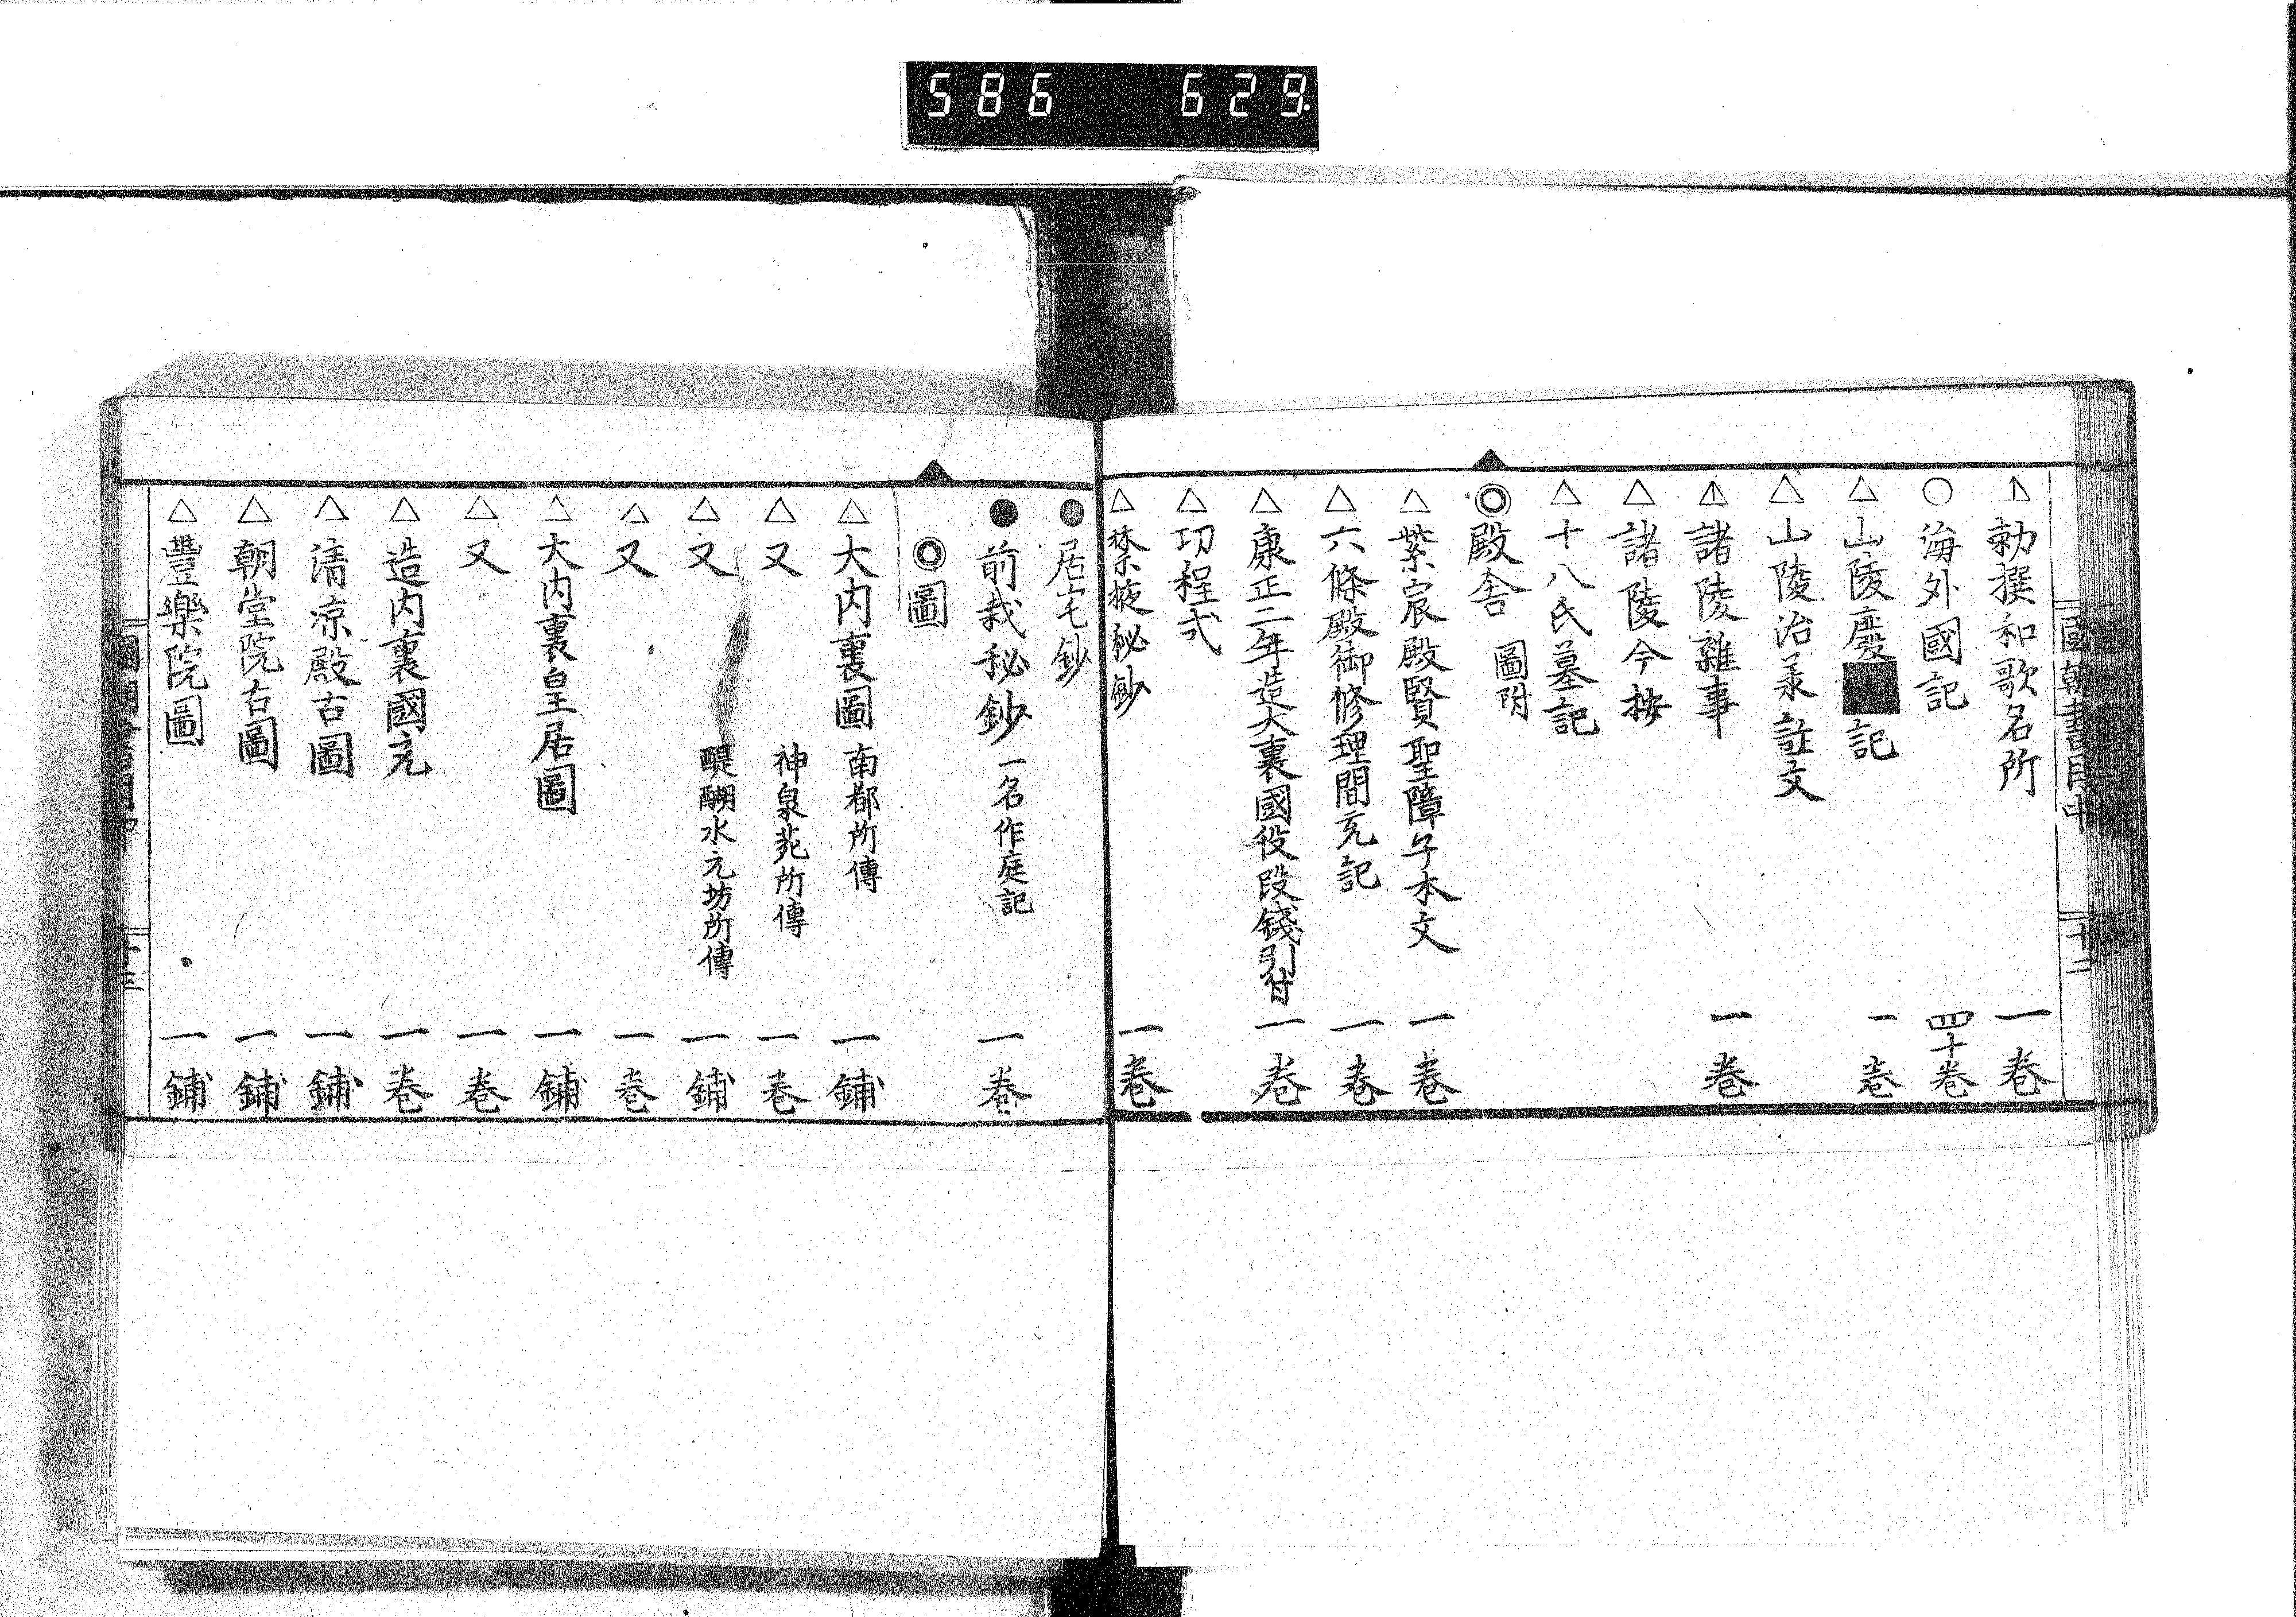 586 629.
國朝書目中 十二
△勅撰和歌名所 一卷
○海外國記 四十卷
△山陵廢■記 一卷
△山陵治秉註文
△諸陵雜事 一卷
△諸陵今按
△十八氏墓記
◎殿舎 圖附
△紫宸殿賢聖障子本文 一卷
△六條殿御修理間充記 一卷
△康正二年造大裏國役段錢引付 一卷
△功程式
△禁掖秘鈔 一卷
●居宅鈔
●前栽秘鈔 一名作庭記 一卷
◎圖
△大内裏圖 南都所傳 一鋪
△又 神泉苑所傳 一卷
△又 醍醐水元坊所傳 一鋪
△又 一卷
△大内裏皇居圖 一鋪
△又 一卷
△造内裏國充 一卷
△清凉殿古圖 一鋪
△朝堂院古圖 一鋪
△豐樂院圖 一鋪
十三